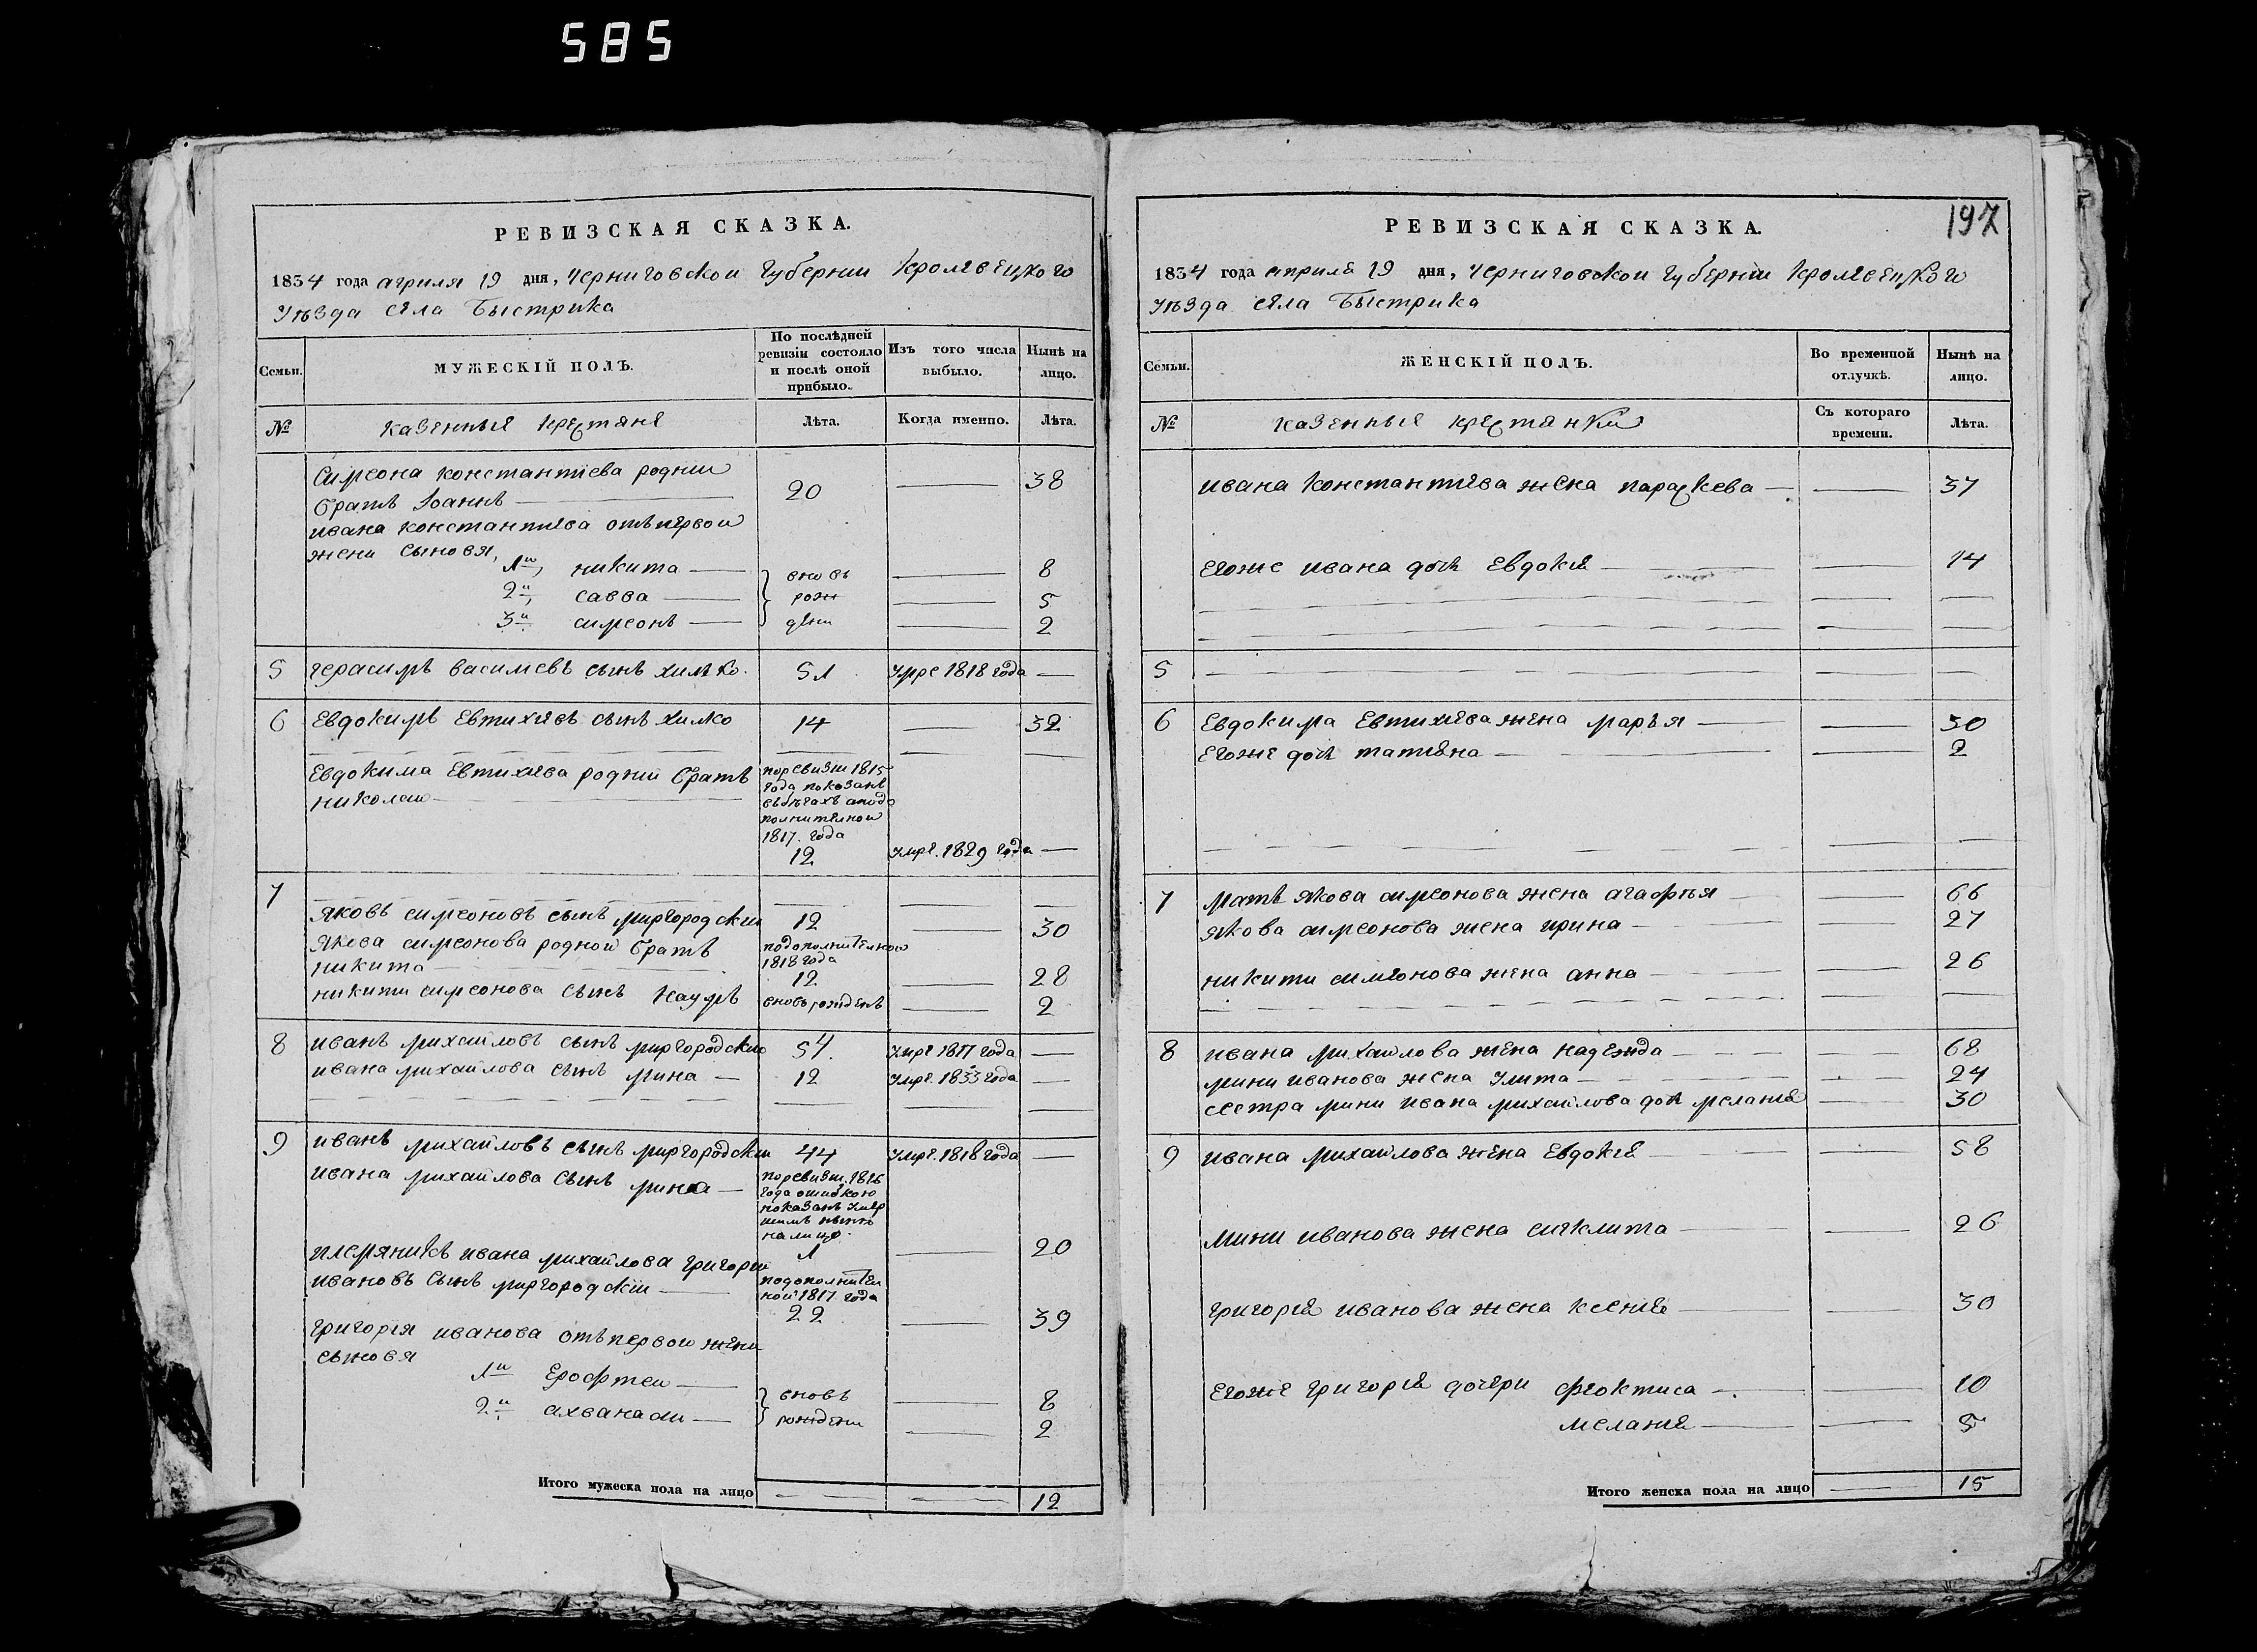 585
РЕВИЗСКАЯ СКАЗКА.
1834 года априля 19 дня, Черниговскои Губернии Кролевецкого
Уѣзда села Быстрика
Семьи.
МУЖЕСКІЙ ПОЛЪ.
По послѣдней ревизіи состояло и послѣ оной прибыло.
Изъ того числа выбыло.
Нынѣ на лицо.
№
казенные крестяне
Лѣта.
Когда именно.
Лѣта.
Симеона константіева роднии
братъ Іоаннъ 20 38
ивана константиева отъ первои
жени сыновя,
1и, никита вновь 8
2и, савва рож 5
3и симеонъ дени 2
5 герасимъ василіевъ сынъ хилко. 51 Умре 1818 года
6 Евдокимъ Евтихіевъ сынъ хилко 14 32
Евдокима Евтихиева роднии братъ
николаи
по ревизии 1815
года показанъ
въ бѣгахъ а по до
полнителнои
1817 года
12 Умре. 1829 года
7
Яковъ симеоновъ сынъ миргородскіи 12 30
Якова симеонова роднои братъ
никита
по дополнителнои
1818 года
12 28
никити симеонова сынъ наумъ вновь рожденъ 2
8 иванъ михаиловъ сынъ миргородскіи 54. Умре 1817 года
ивана михаилова сынъ мина 12 Умре. 1833 года
9 иванъ михаиловъ сынъ миргородскіи 44 Умре. 1818 года
ивана михаилова сынъ мина
по ревизии 1816
года ошибкою
показанъ умер
шимъ нынѣ
на лицо.
1 20
племяникъ ивана михаилова григории
ивановъ сынъ миргородскіи
по дополнител
ной 1817 года
22 39
григорія иванова отъ первои жени
сыновя
1и Ерофтеи вновь 8
2и ахванасии рождени 2
Итого мужеска пола на лицо 12
197
РЕВИЗСКАЯ СКАЗКА.
1834 года априля 19 дня, Черниговскои Губерніи Кролевецкого
Уѣзда села Быстрика
Семьи.
ЖЕНСКІЙ ПОЛЪ.
Во временной отлучкѣ.
Нынѣ на лицо.
№
казенные крестянки
Съ котораго времени.
Лѣта.
ивана константиева жена параскева 37
Егоже ивана дочь Евдокія 14
5
6 Евдокима Евтихиева жена марья 30
Егоже дочь татіяна 2
7 мать якова симеонова жена агафья 66
якова симеонова жена ирина 27
никити симеонова жена анна 26
8 ивана михаилова жена надежда 68
мини иванова жена Улита 24
сестра мини ивана михаилова дочь меланія 30
9 ивана михаилова жена Евдокія 58
мини иванова жена сигклита 26
григорія иванова жена ксенія 30
Егоже григорія дочери феоктиса 10
меланія 5
Итого женска пола на лицо 15